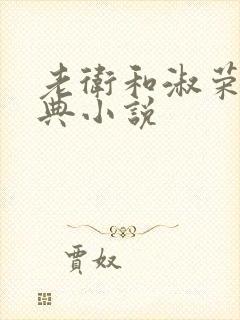 老衛和淑荣
典小說
賈奴